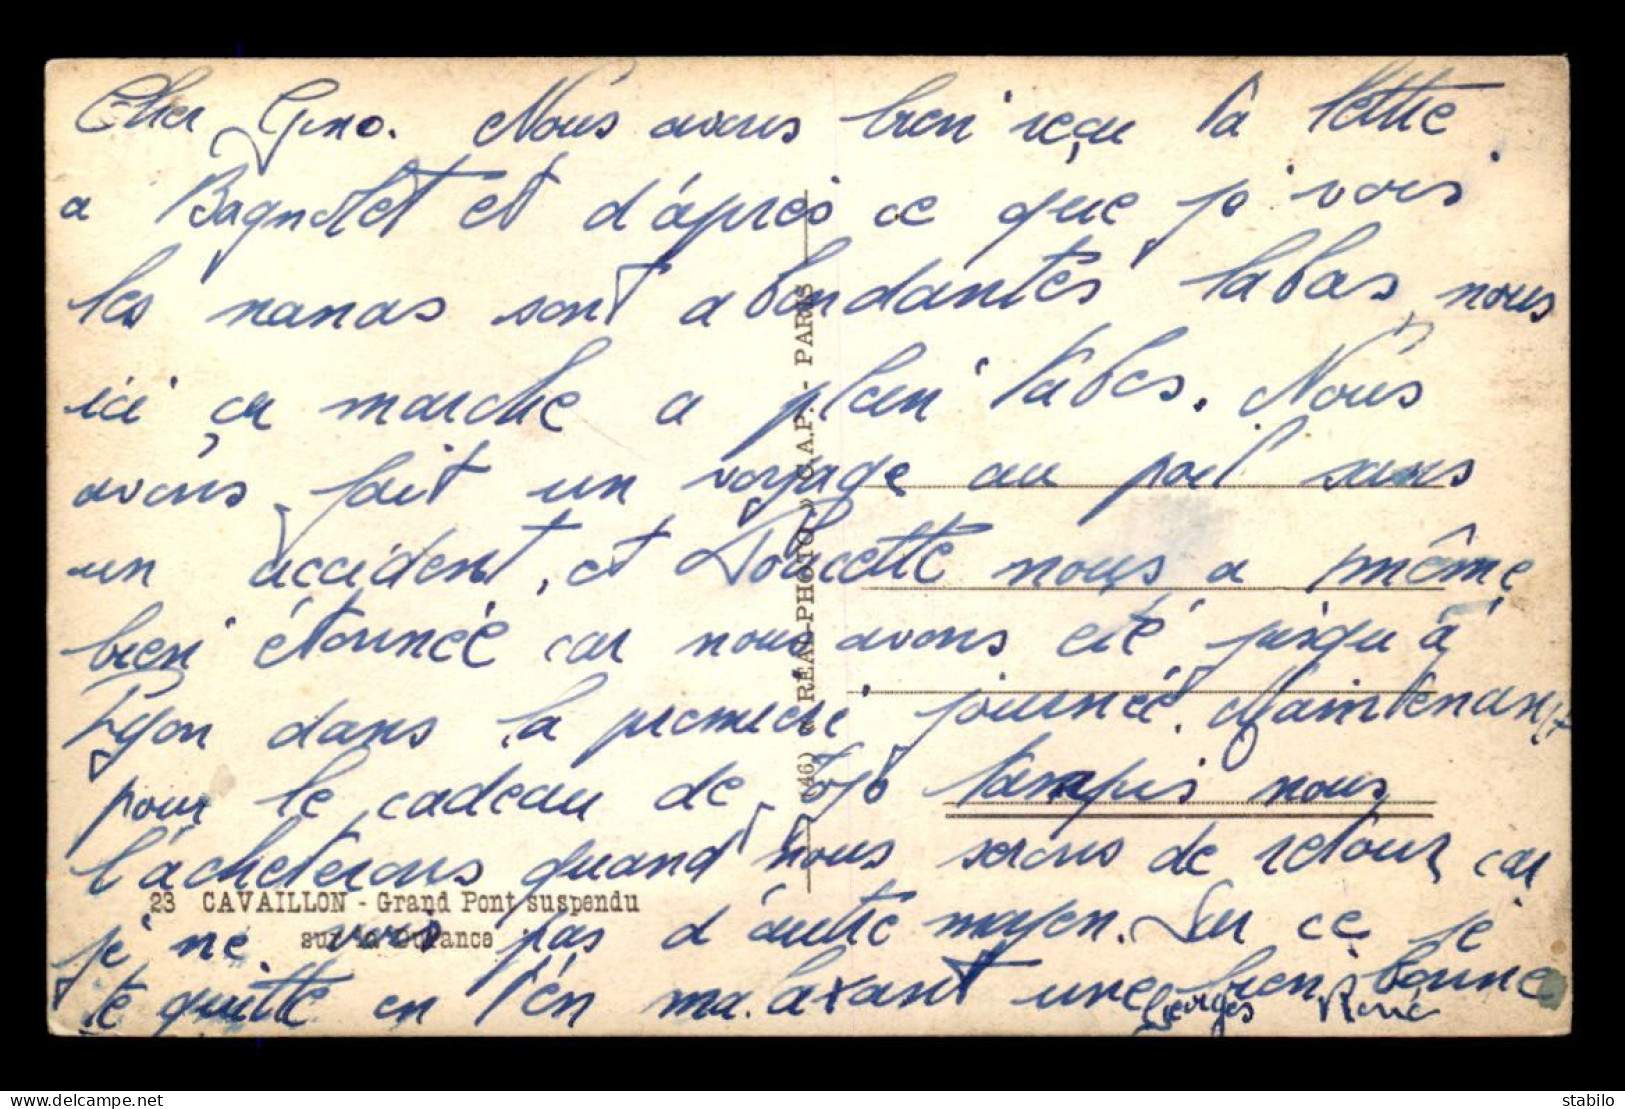 Cher Gino. Nous avons bien reçu ta lettre
a Bagnolet et d'après ce que je vois
les nanas sont abondantes labas, nous
ici ça marche a plein tubes. Nous
avons fait un voyage au poil sans
un accident, et Doucette nous a même
bien étonnée car nous avons été jusqu'à
Lyon dans la première journée. Maintenant
pour le cadeau de Jojo tampis nous
l'acheterons quand nous serons de retour car
je ne vois pas d'autre moyen. Sur ce je
te quitte en t'en malaxant une bien bonne
Georges René
23 CAVAILLON - Grand Pont suspendu
sur la Durance
(46) « REAL-PHOTO » C.A.P. - PARIS
delcampe.net
stabilo